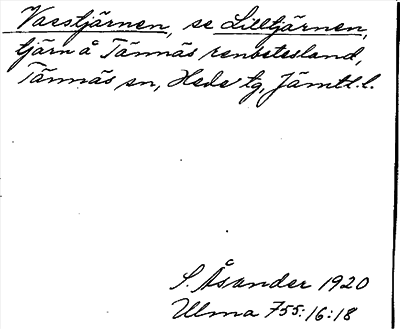 Vaestjärnen, se Lilltjärnen,
tjärn å Tännäs renbetesland,
Tännäs sn, Hede tg, Jämtl. l.
S. Åsander 1920
Ulma 755:16:18